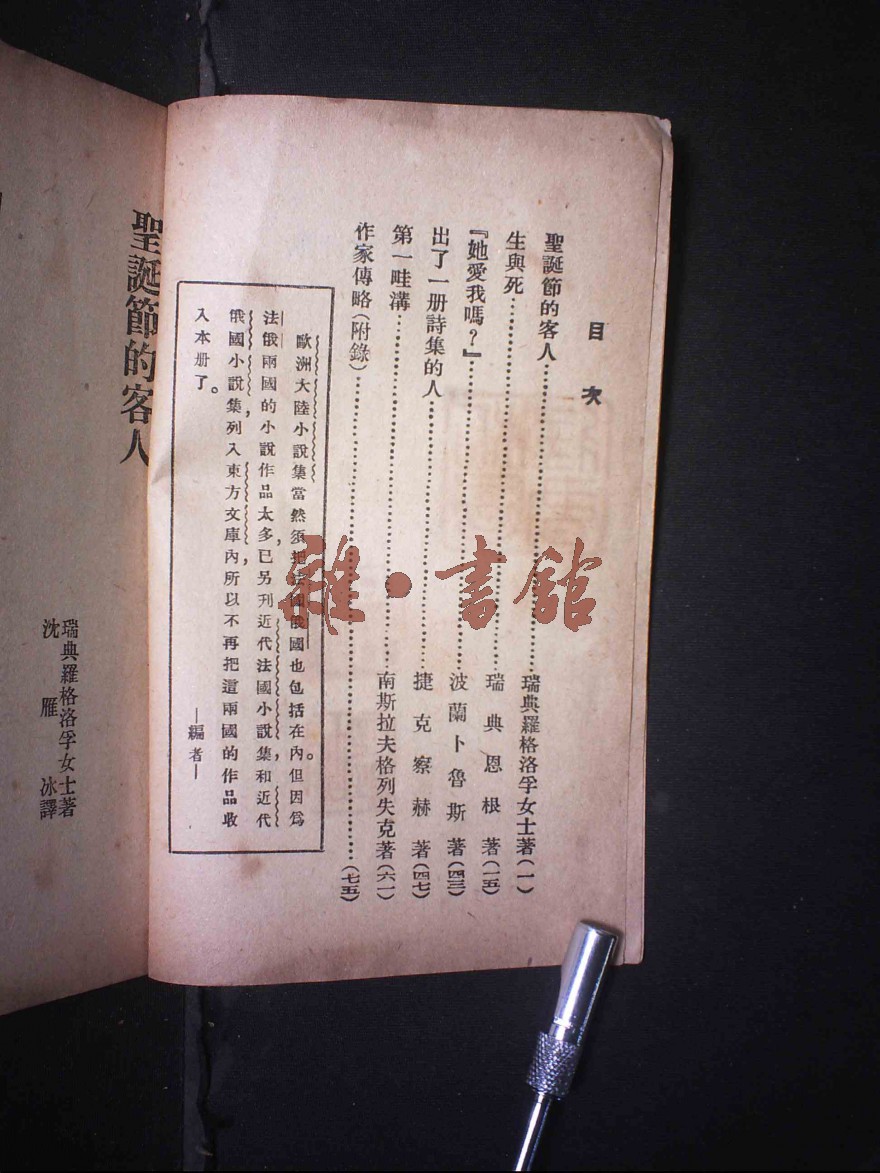 目次
聖誕節的客人……瑞典羅格洛孚女士著(一)
生與死……瑞典恩根著(一五)
『她愛我嗎？』……波蘭卜魯斯著(四三)
出了一册詩集的人……捷克察赫著(四七)
第一畦溝……南斯拉夫格列失克著(六一)
作家傳略(附錄)……(七五)
歐洲大陸小說集當然須把法國俄國也包括在內。但因爲
法俄兩國的小說作品太多，已另刊近代法國小說集和近代
俄國小說集，列入東方文庫內，所以不再把這兩國的作品收
入本册了。
—編者—
聖誕節的客人
瑞典羅格洛孚女士著
沈雁冰譯
雜·書館